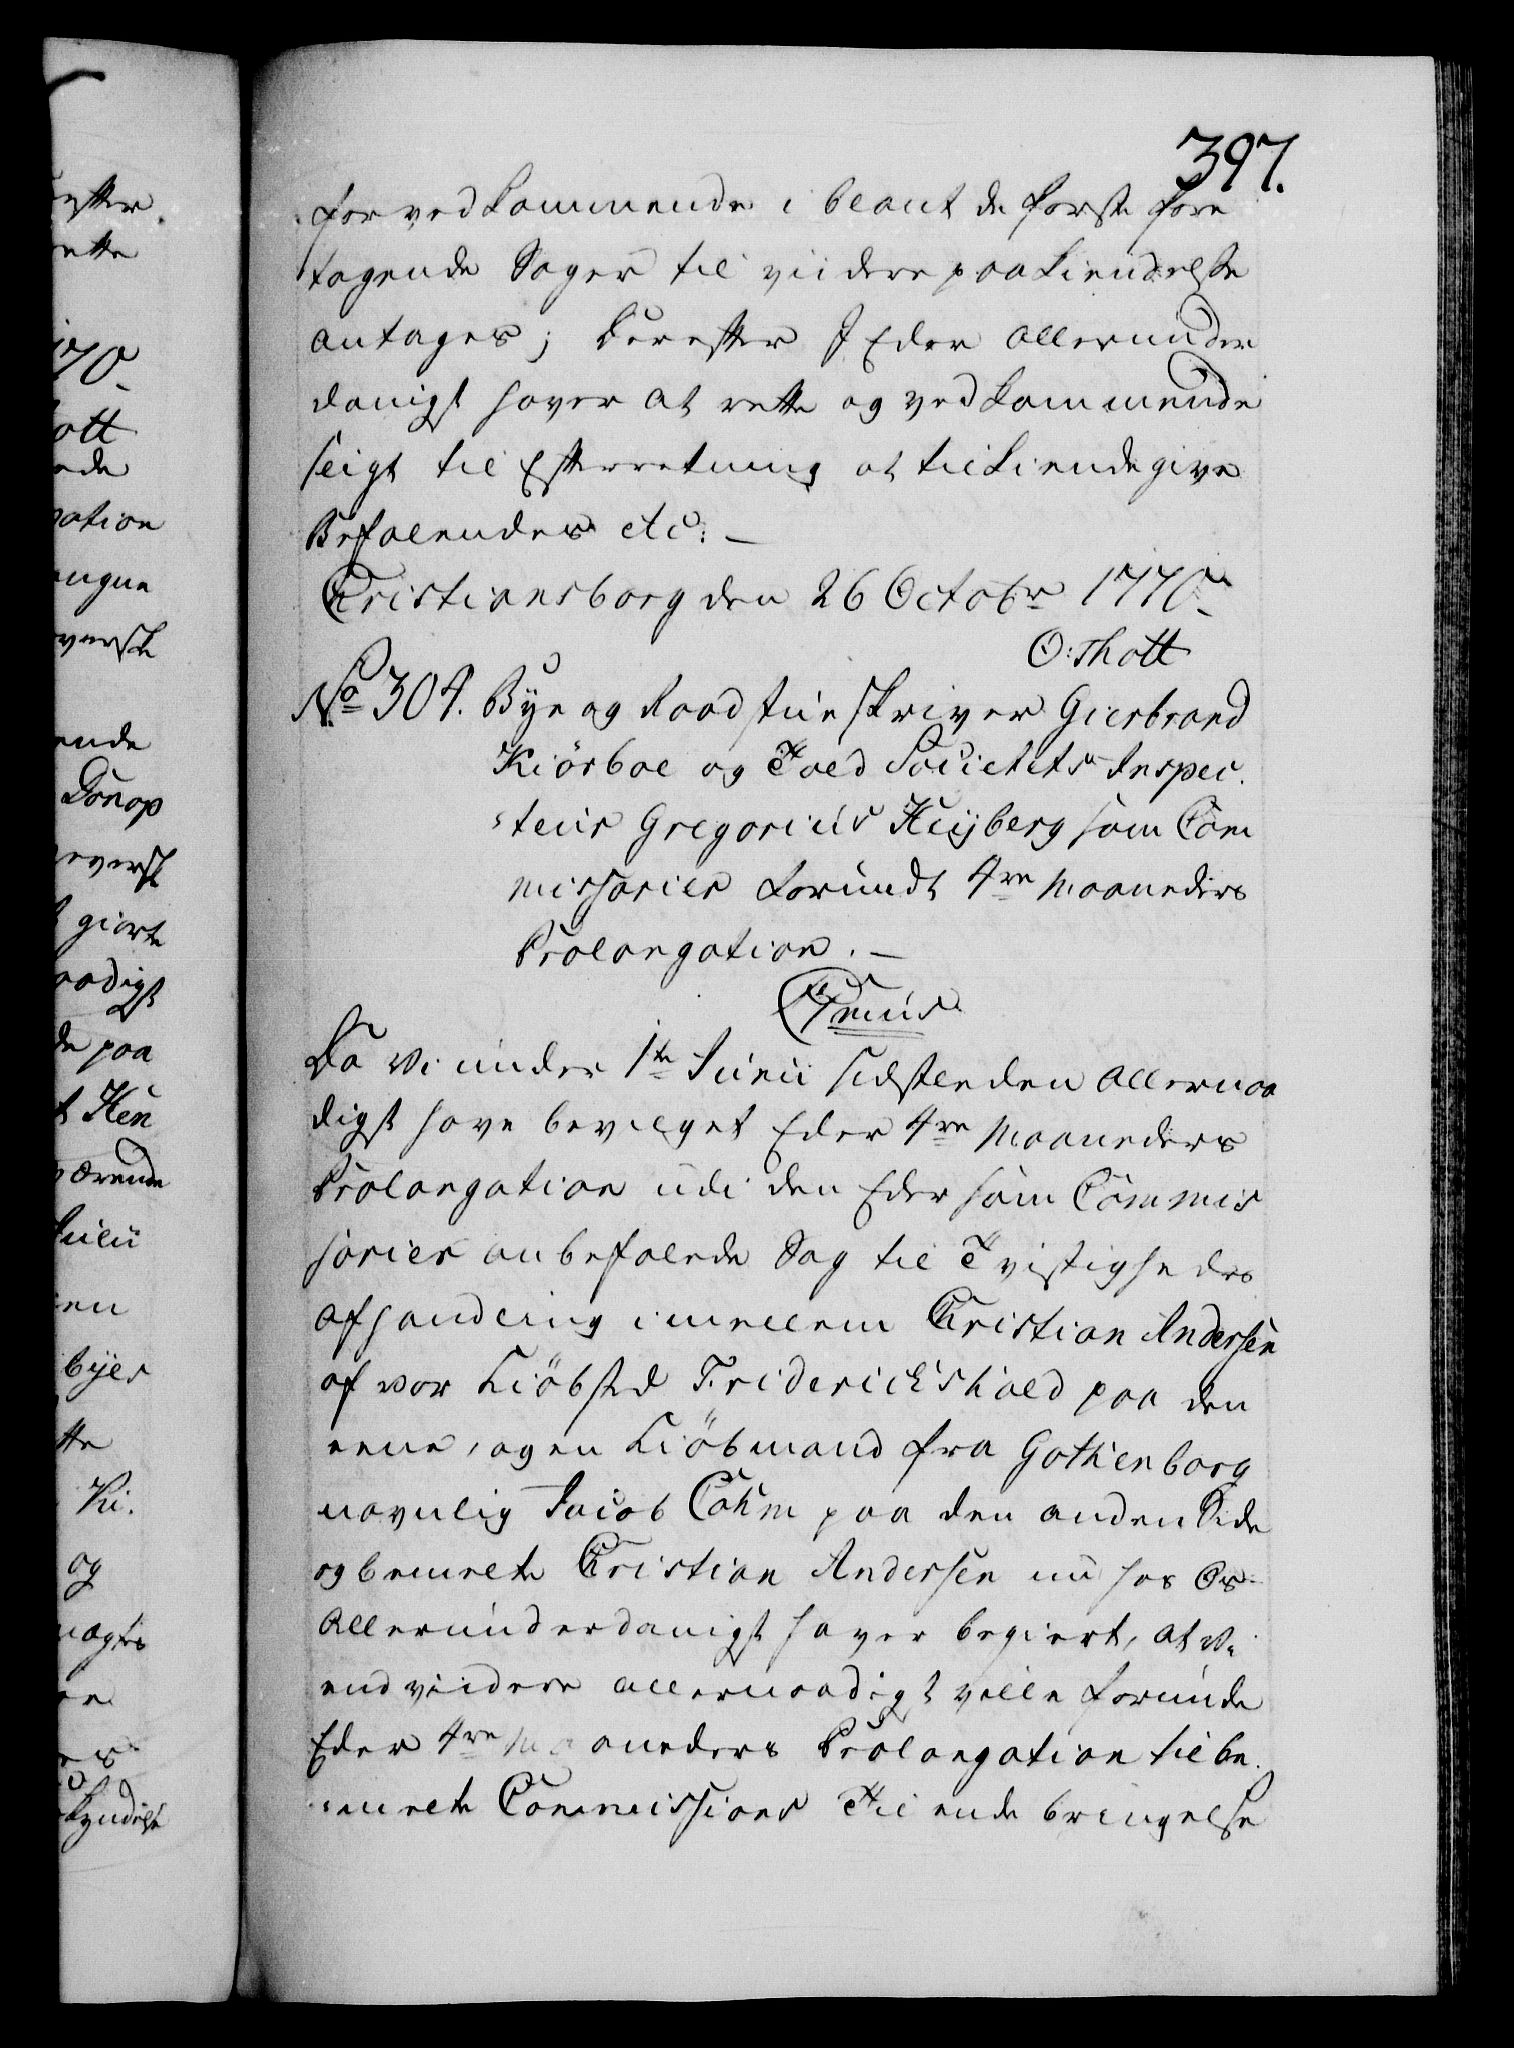 397.
forvedkommende i blant de første fore
tagende Sager til viidere paakiendelse
antages; Derefter I Eder allerunder
danigst haver at rette og vedkommende
sligt til Efterretning at tilkiendegive
Befalendes etc: —
Christiansborg den 26 Octobr 1770.
O: Thott
No 304. Bye og Raadstueskriver Gierbrand
Kiörboe og Told Societets Inspec-
teur Gregorius Huyberg som Com
missarier forundt 4re Maaneders
Prolongation. —
C7mus
Da Vi under 1te Junii sidstleeden allernaa
digst have bevilget Eder 4re Maaneders
Prolongation udi den Eder som Commis
sarier anbefalede Sag til Tvistigheders
afhandling imellem Christian Andersen
af vor Kiöbsted Friderichshald paa den
eene, og en Kiöbmand fra Gothenborg
navnlig Jacob Cahm paa den anden Side
og bemelte Christian Andersen nu hos Os
Allerunderdanigst haver begiert, at Vi
end viidere allernaadigst ville forunde
Eder 4re Maaneders Prolongation til be-
melte Commissions Tilendebringelse
efter.
rette
1770
Thott
ation
verste
ende
Donop
giorte
naadigst
de paa
Hen
værende
Julii
en
byes
tte
Ki.
og